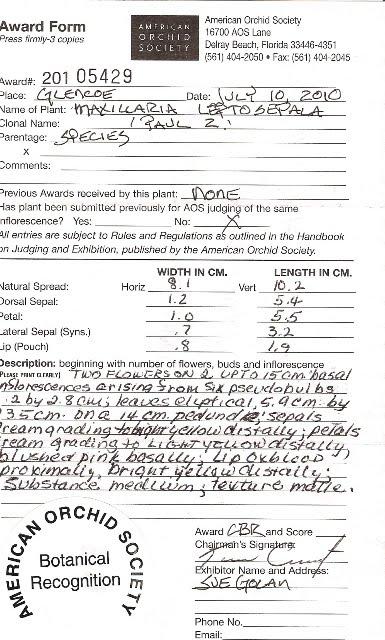 Award Form
Press firmly-3 copies
AMERICAN
ORCHID
SOCIETY
American Orchid Society
16700 AOS Lane
Delray Beach, Florida 33446-4351
(561) 404-2050 • Fax: (561) 404-2045
Award#: 201 05429
Place: GLENCOE Date: JULY 10, 2010
Name of Plant: MAXILLARIA LEPTOSEPALA
Clonal Name: 'PAUL Z'
Parentage: SPECIES
x
Comments:
Previous Awards received by this plant: NONE
Has plant been submitted previously for AOS judging of the same
inflorescence? Yes: No: X
All entries are subject to Rules and Regulations as outlined in the Handbook
on Judging and Exhibition, published by the American Orchid Society.
WIDTH IN CM. LENGTH IN CM.
Natural Spread: Horiz 8.1 Vert 10.2
Dorsal Sepal: 1.2 5.4
Petal: 1.0 5.5
Lateral Sepal (Syns.) .7 3.2
Lip (Pouch) .8 1.9
Description: beginning with number of flowers, buds and inflorescence
(PLEASE PRINT CLEARLY) TWO FLOWERS ON 2 UP TO 15 cm. basal
inflorescences arising from six pseudobulbs
.2 by 2.8 cm; leaves eliptical, 5.9 cm. by
35 cm. on a 14 cm. peduncle; sepals
cream grading to bright yellow distally, petals
cream grading to LIGHT yellow distally
blushed pink basally; Lip oxblood
proximally, bright yellow distally;
Substance medium; texture matte.
AMERICAN ORCHID SOCIETY
Botanical
Recognition
Award CBR and Score
Chairman's Signature:
Exhibitor Name and Address:
SUE GOLAN
Phone No.
Email: